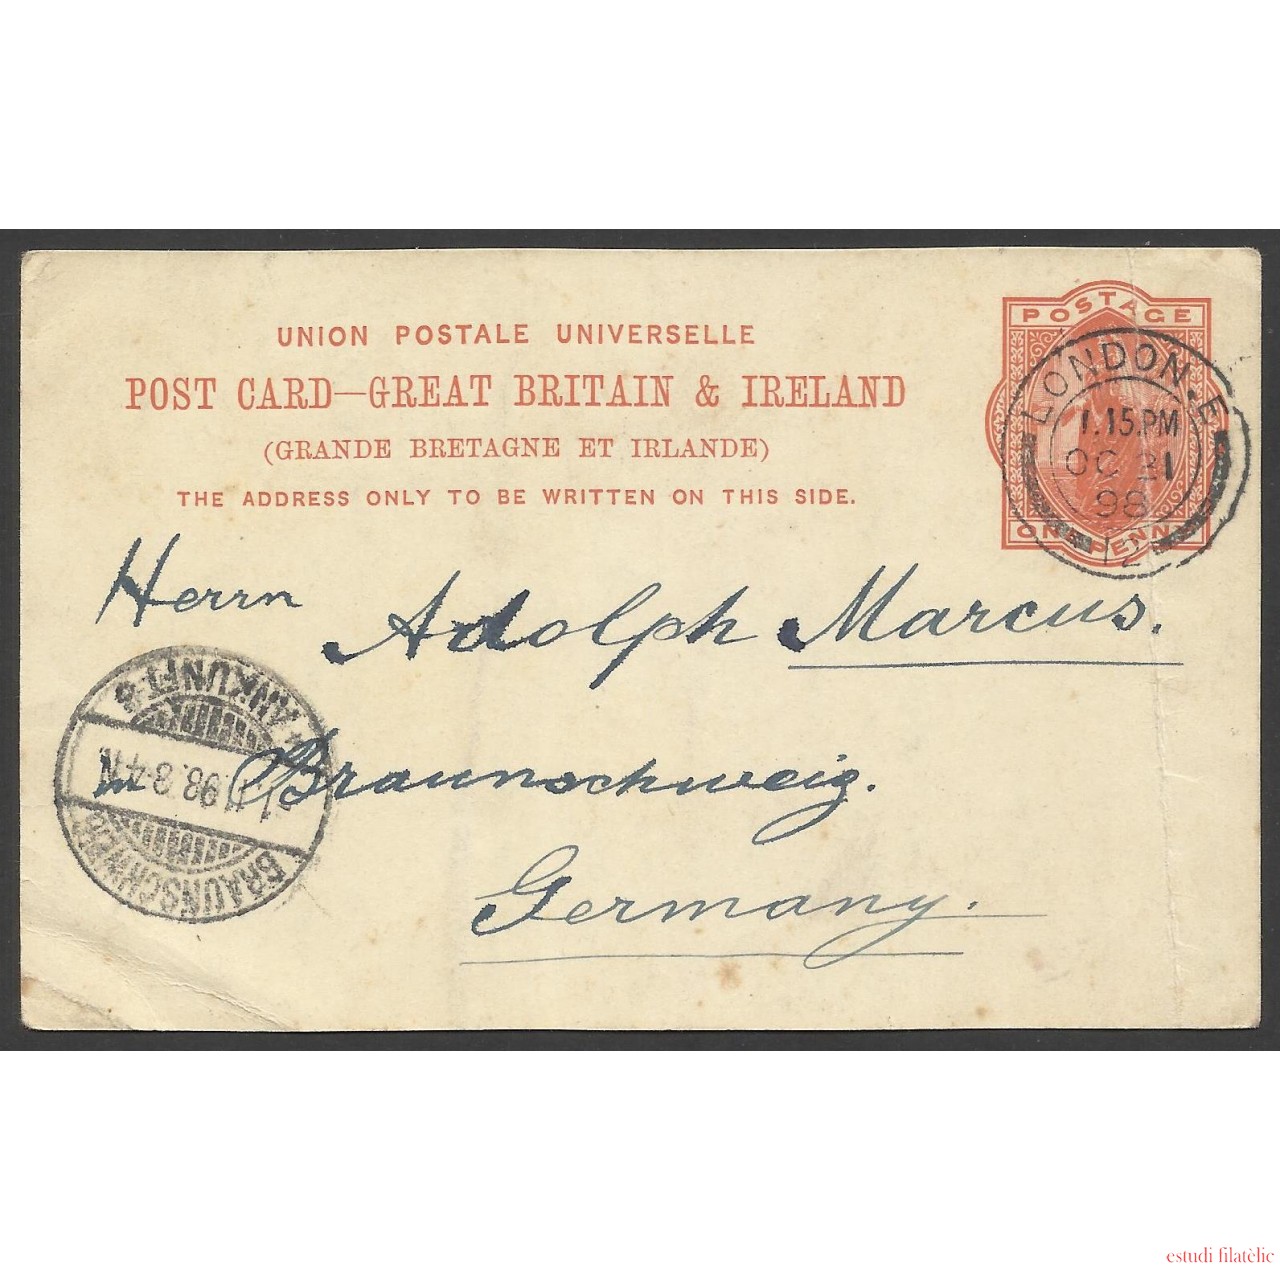 UNION POSTALE UNIVERSELLE
POST CARD—GREAT BRITAIN & IRELAND
(GRANDE BRETAGNE ET IRLANDE)
THE ADDRESS ONLY TO BE WRITTEN ON THIS SIDE.
POSTAGE
ONE PENNY
LONDON.E
1.15.PM
OC 21
98
12
Herrn Adolph Marcus.
in Braunschweig.
Germany.
BRAUNSCHWEIG
98.3-4N.
ANKUNFT
estudi filatèlic